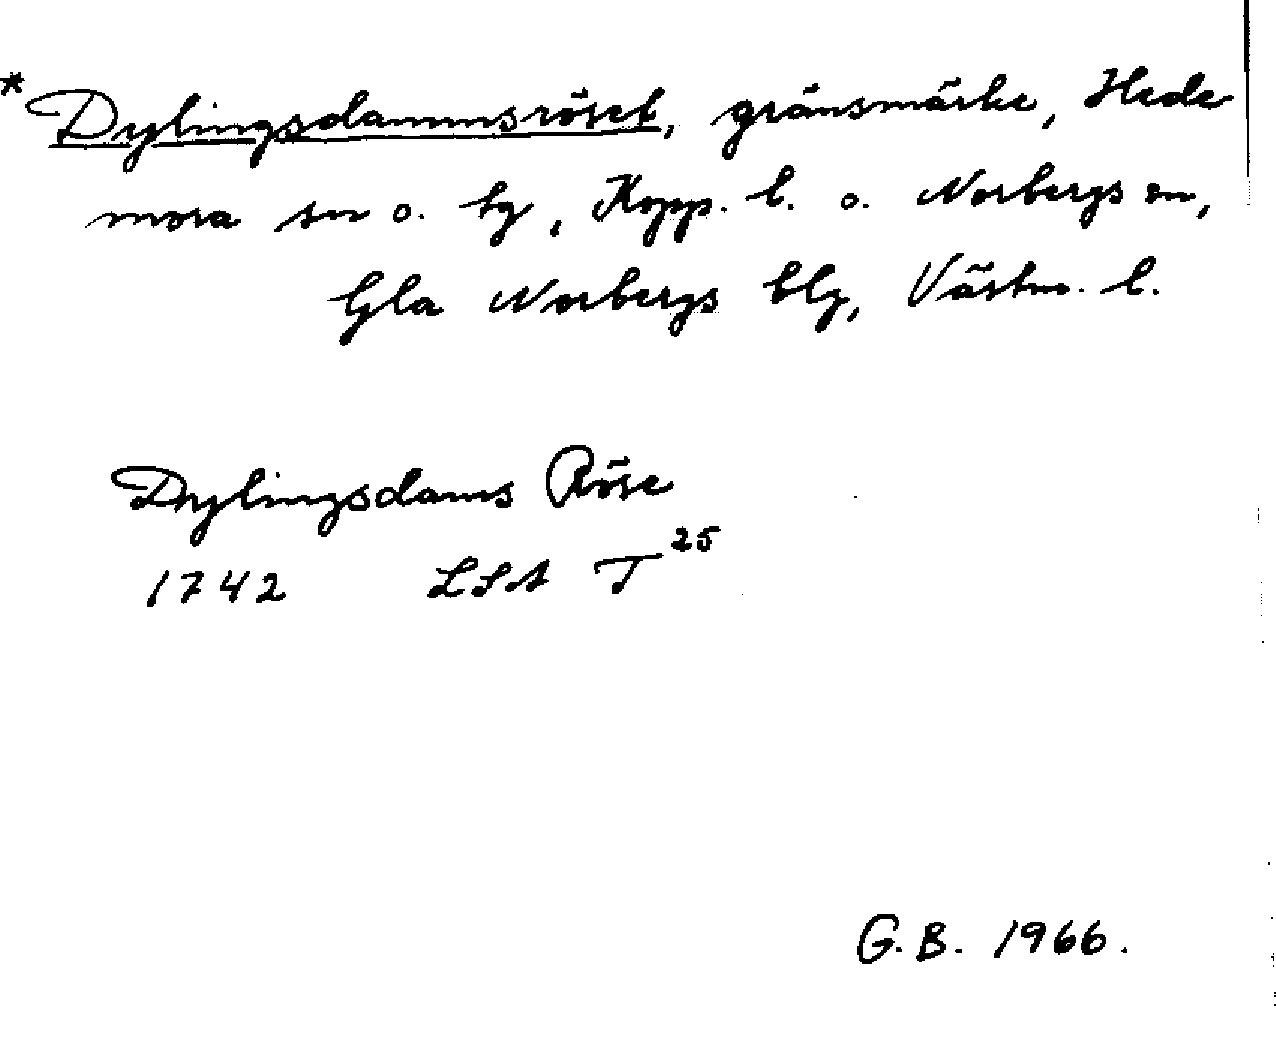 *Dylingsdammsröset, gränsmärke, Hede
mora sn o. hg, Kopp. l. o. Norbergs sn,
Gla Norbergs blg, Västm. l.
Dylingsdams Röse
1742 LSA T25
G.B. 1966.